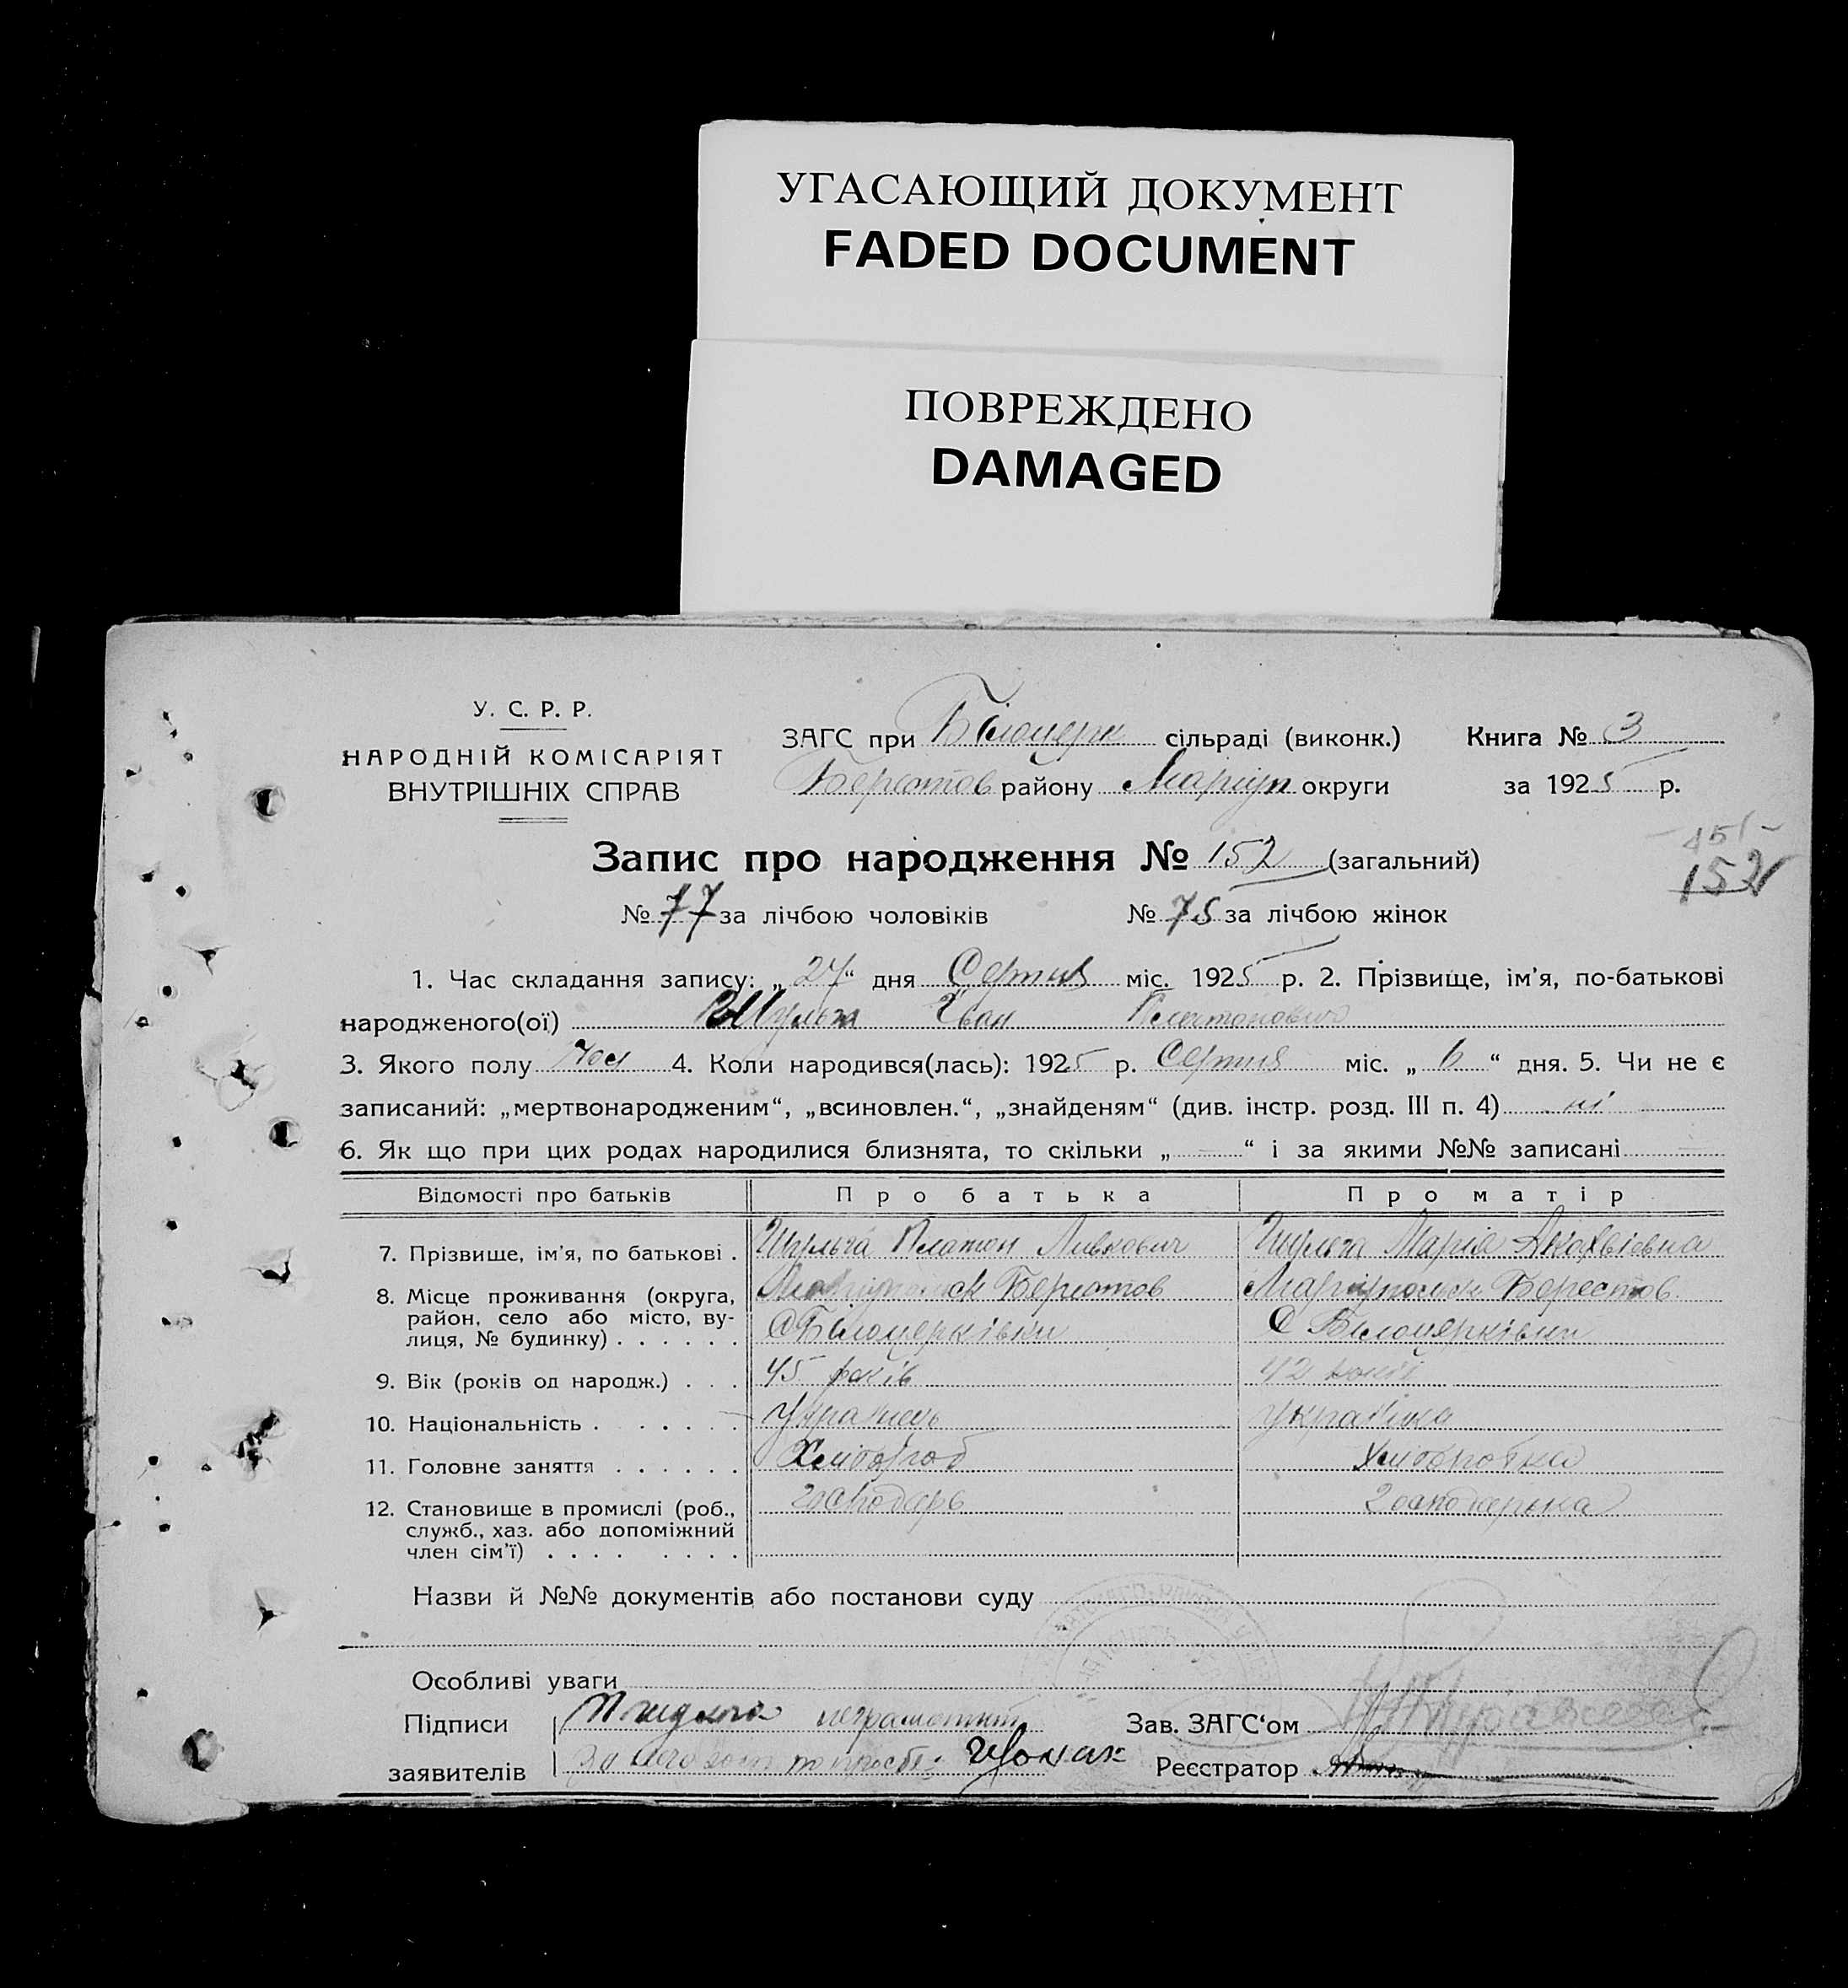 УГАСАЮЩИЙ ДОКУМЕНТ
FADED DOCUMENT
ПОВРЕЖДЕНО
DAMAGED
У. С. Р. Р.
НАРОДНІЙ КОМІСАРІЯТ
ВНУТРІШНІХ СПРАВ
ЗАГС при Білоцерк сільраді (виконк.) Книга № 3
Берестов району Маріуп округи за 1925 р.
Запис про народження № 152 (загальний)
151
152
№ 77 за лічбою чоловіків № 75 за лічбою жінок
1. Час складання запису: „27“ дня Серпня міс. 1925 р. 2. Прізвище, ім'я, по-батькові
народженого(ої) Шульга Іван Платонович
3. Якого полу чол 4. Коли народився(лась): 1925 р. Серпня міс. „6“ дня. 5. Чи не є
записаний: „мертвонародженим“, „всиновлен.“, „знайденям“ (див. інстр. розд. III п. 4) ні
6. Як що при цих родах народилися близнята, то скільки „—“ і за якими №№ записані —
Відомості про батьків Про батька Про матір
7. Прізвище, ім'я, по батькові . Шульга Платон Шульга Марія
8. Місце проживання (округа, Берестов Маріупольск Берестов
район, село або місто, ву-
лиця, № будинку) . . . . . . С Білоцерківки С Білоцерківки
9. Вік (років од народж.) . . . 45 років 42 років
10. Національність . . . . . . Українець Українка
11. Головне заняття . . . . . . Хлібороб Хлібробка
12. Становище в промислі (роб., господарь господарька
служб., хаз. або допоміжний
член сім'ї) . . . . . . . .
Назви й №№ документів або постанови суду
Особливі уваги
Підписи неграмотний Зав. ЗАГС'ом
заявителів За його по просбе Реєстратор